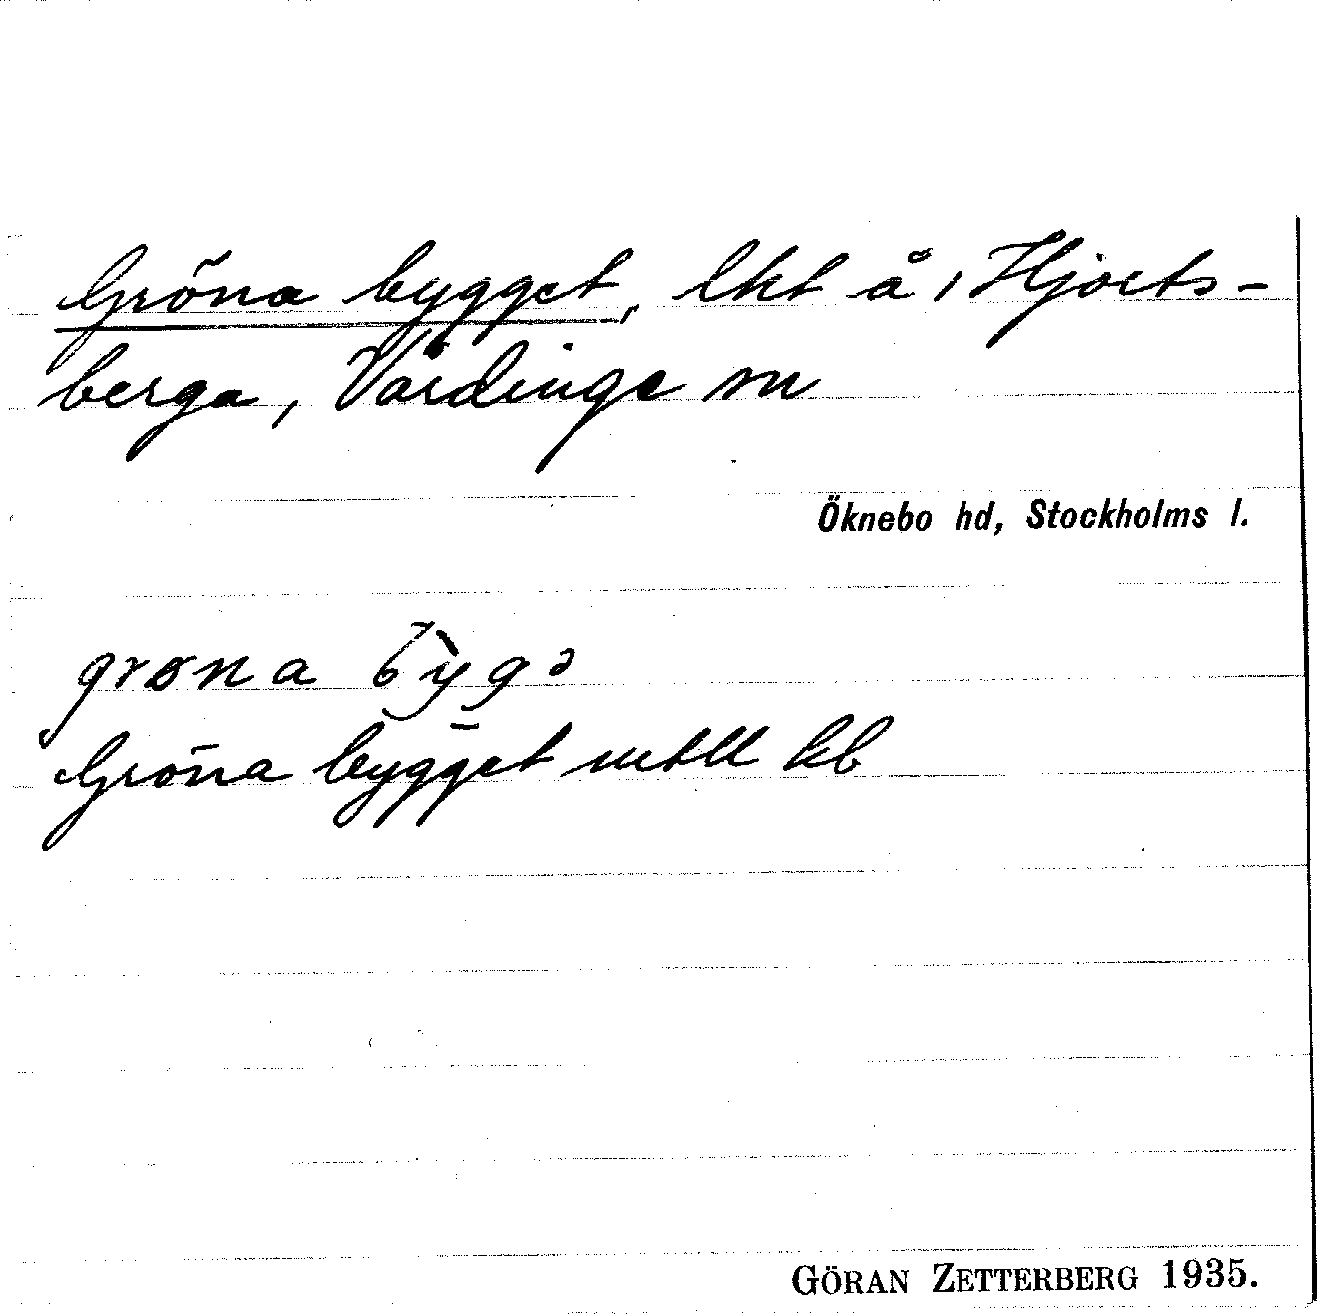 Gröna bygget, lht å, Hjorts-
berga, Vårdinge sn
Öknebo hd, Stockholms l.
grøna byg
Gröna bygget kb
GÖRAN ZETTERBERG 1935.